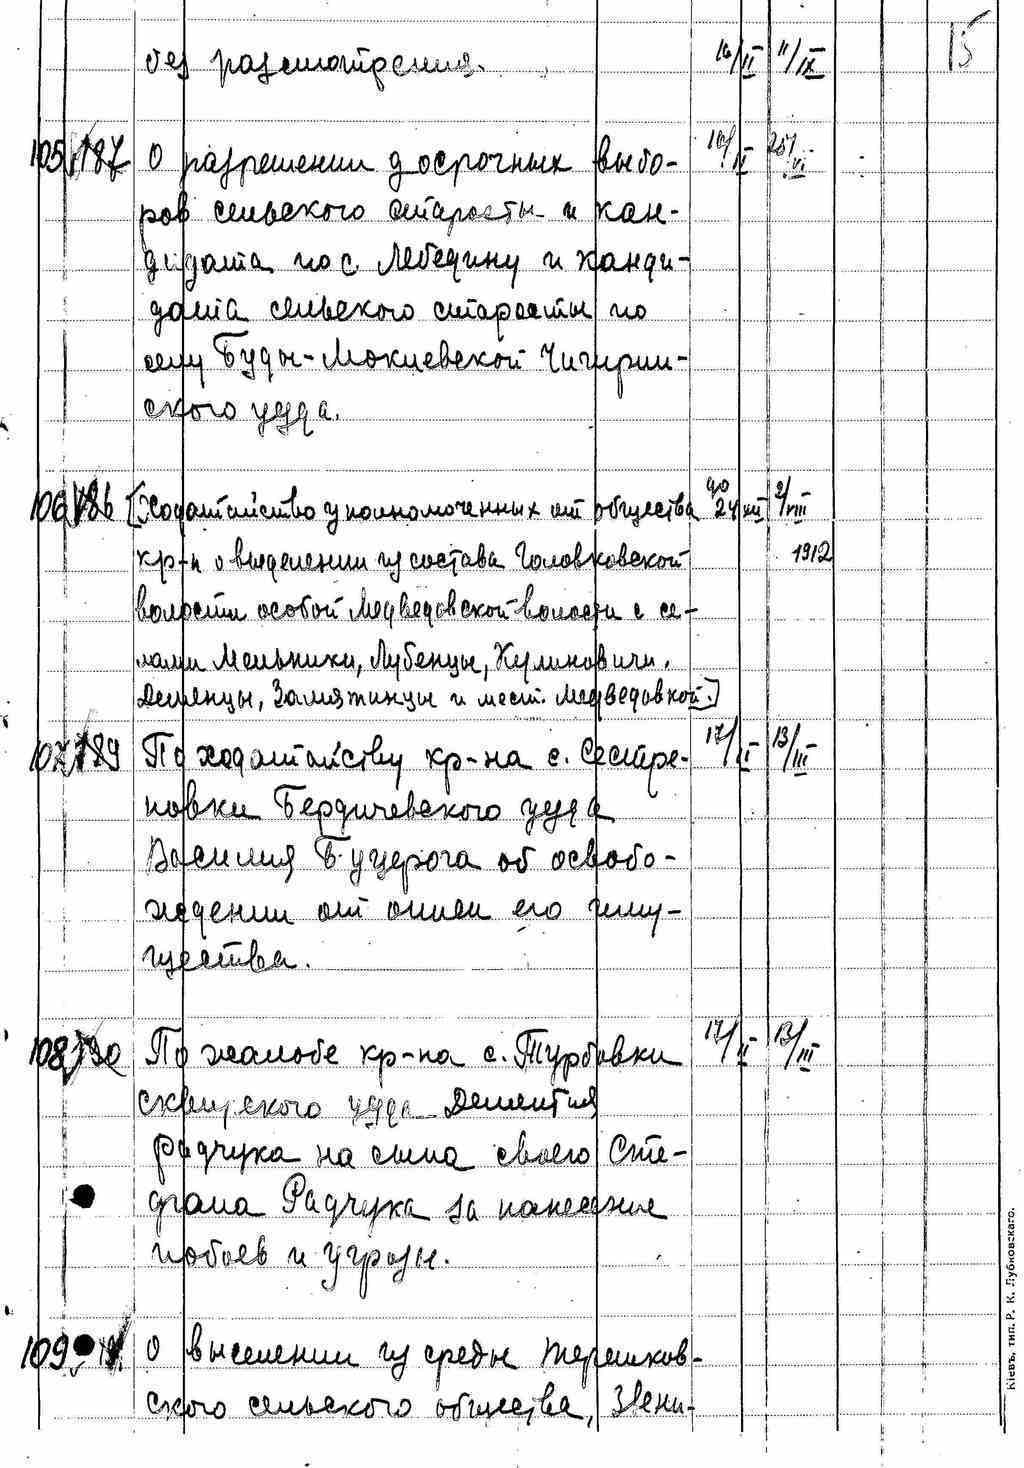 без разсмотрения. 16/II 11/IX 15
105 187 О разрешении досрочных выбо- 10/IV 25/VI
ров сельского старосты и кан-
дидата по с. Лебедину и канди-
дата сельского старосты по
селу Буды-Мокиевской Чигирин-
ского уезда.
106 186 [Ходатайство уполномоченных от общества до 24/XII 2/VIII
кр-н о выделении из состава Головковской 1912
волости особой Медведовской волости с се-
лами Мельники, Лубенцы, Худиновичи,
Деменцы, Замятинцы и мест. Медведовкой.]
107 189 По ходатайству кр-на с. Сестре- 17/II 13/III
новки Бердичевского уезда
Василия Буцерога об освобо-
ждении от описи его иму-
щества.
108 190 По жалобе кр-на с. Турбовки 17/II 13/III
сквирского уезда Дементия
Радчука на сына своего Сте-
фана Радчука за нанесение
побоев и угрозы.
109 О выселении из среды терешков-
ского сельского общества, Звени-
Кіевъ, тип. Р. К. Лубковскаго.